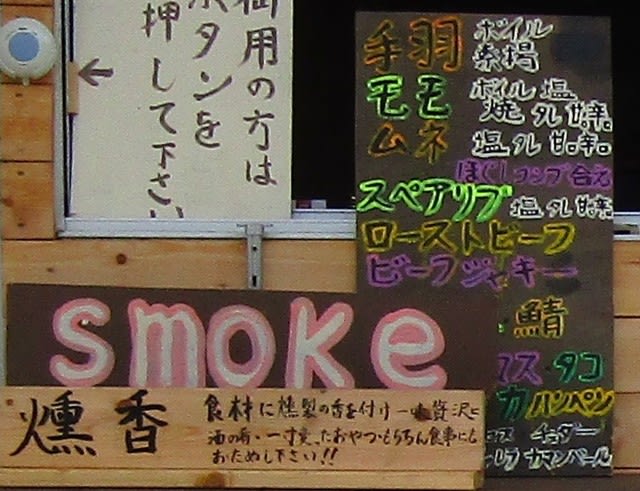 御用の方は
ボタンを
押して下さい
←
手羽 ボイル
素揚
モモ ボイル 塩
焼 タレ 甘。辛。
ムネ 塩 タレ 甘。辛。
ほぐし コンブ合え
スペアリブ 塩 タレ 甘辛
ローストビーフ
ビーフジャーキー
鯖
マス・タコ
カ ハンペン
チェダー
カマンベール
smoke
燻香
食材に燻製の香を付け一味贅沢に
酒の肴・一寸変ったおやつ・もちろん食事にも
おためし下さい!!